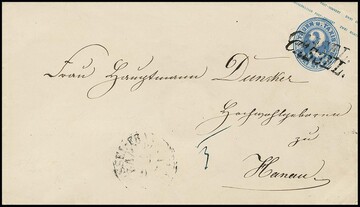 CASSEL.
Frau Hauptmann Duncker
Hochwohlgeboren
zu
Hanau.